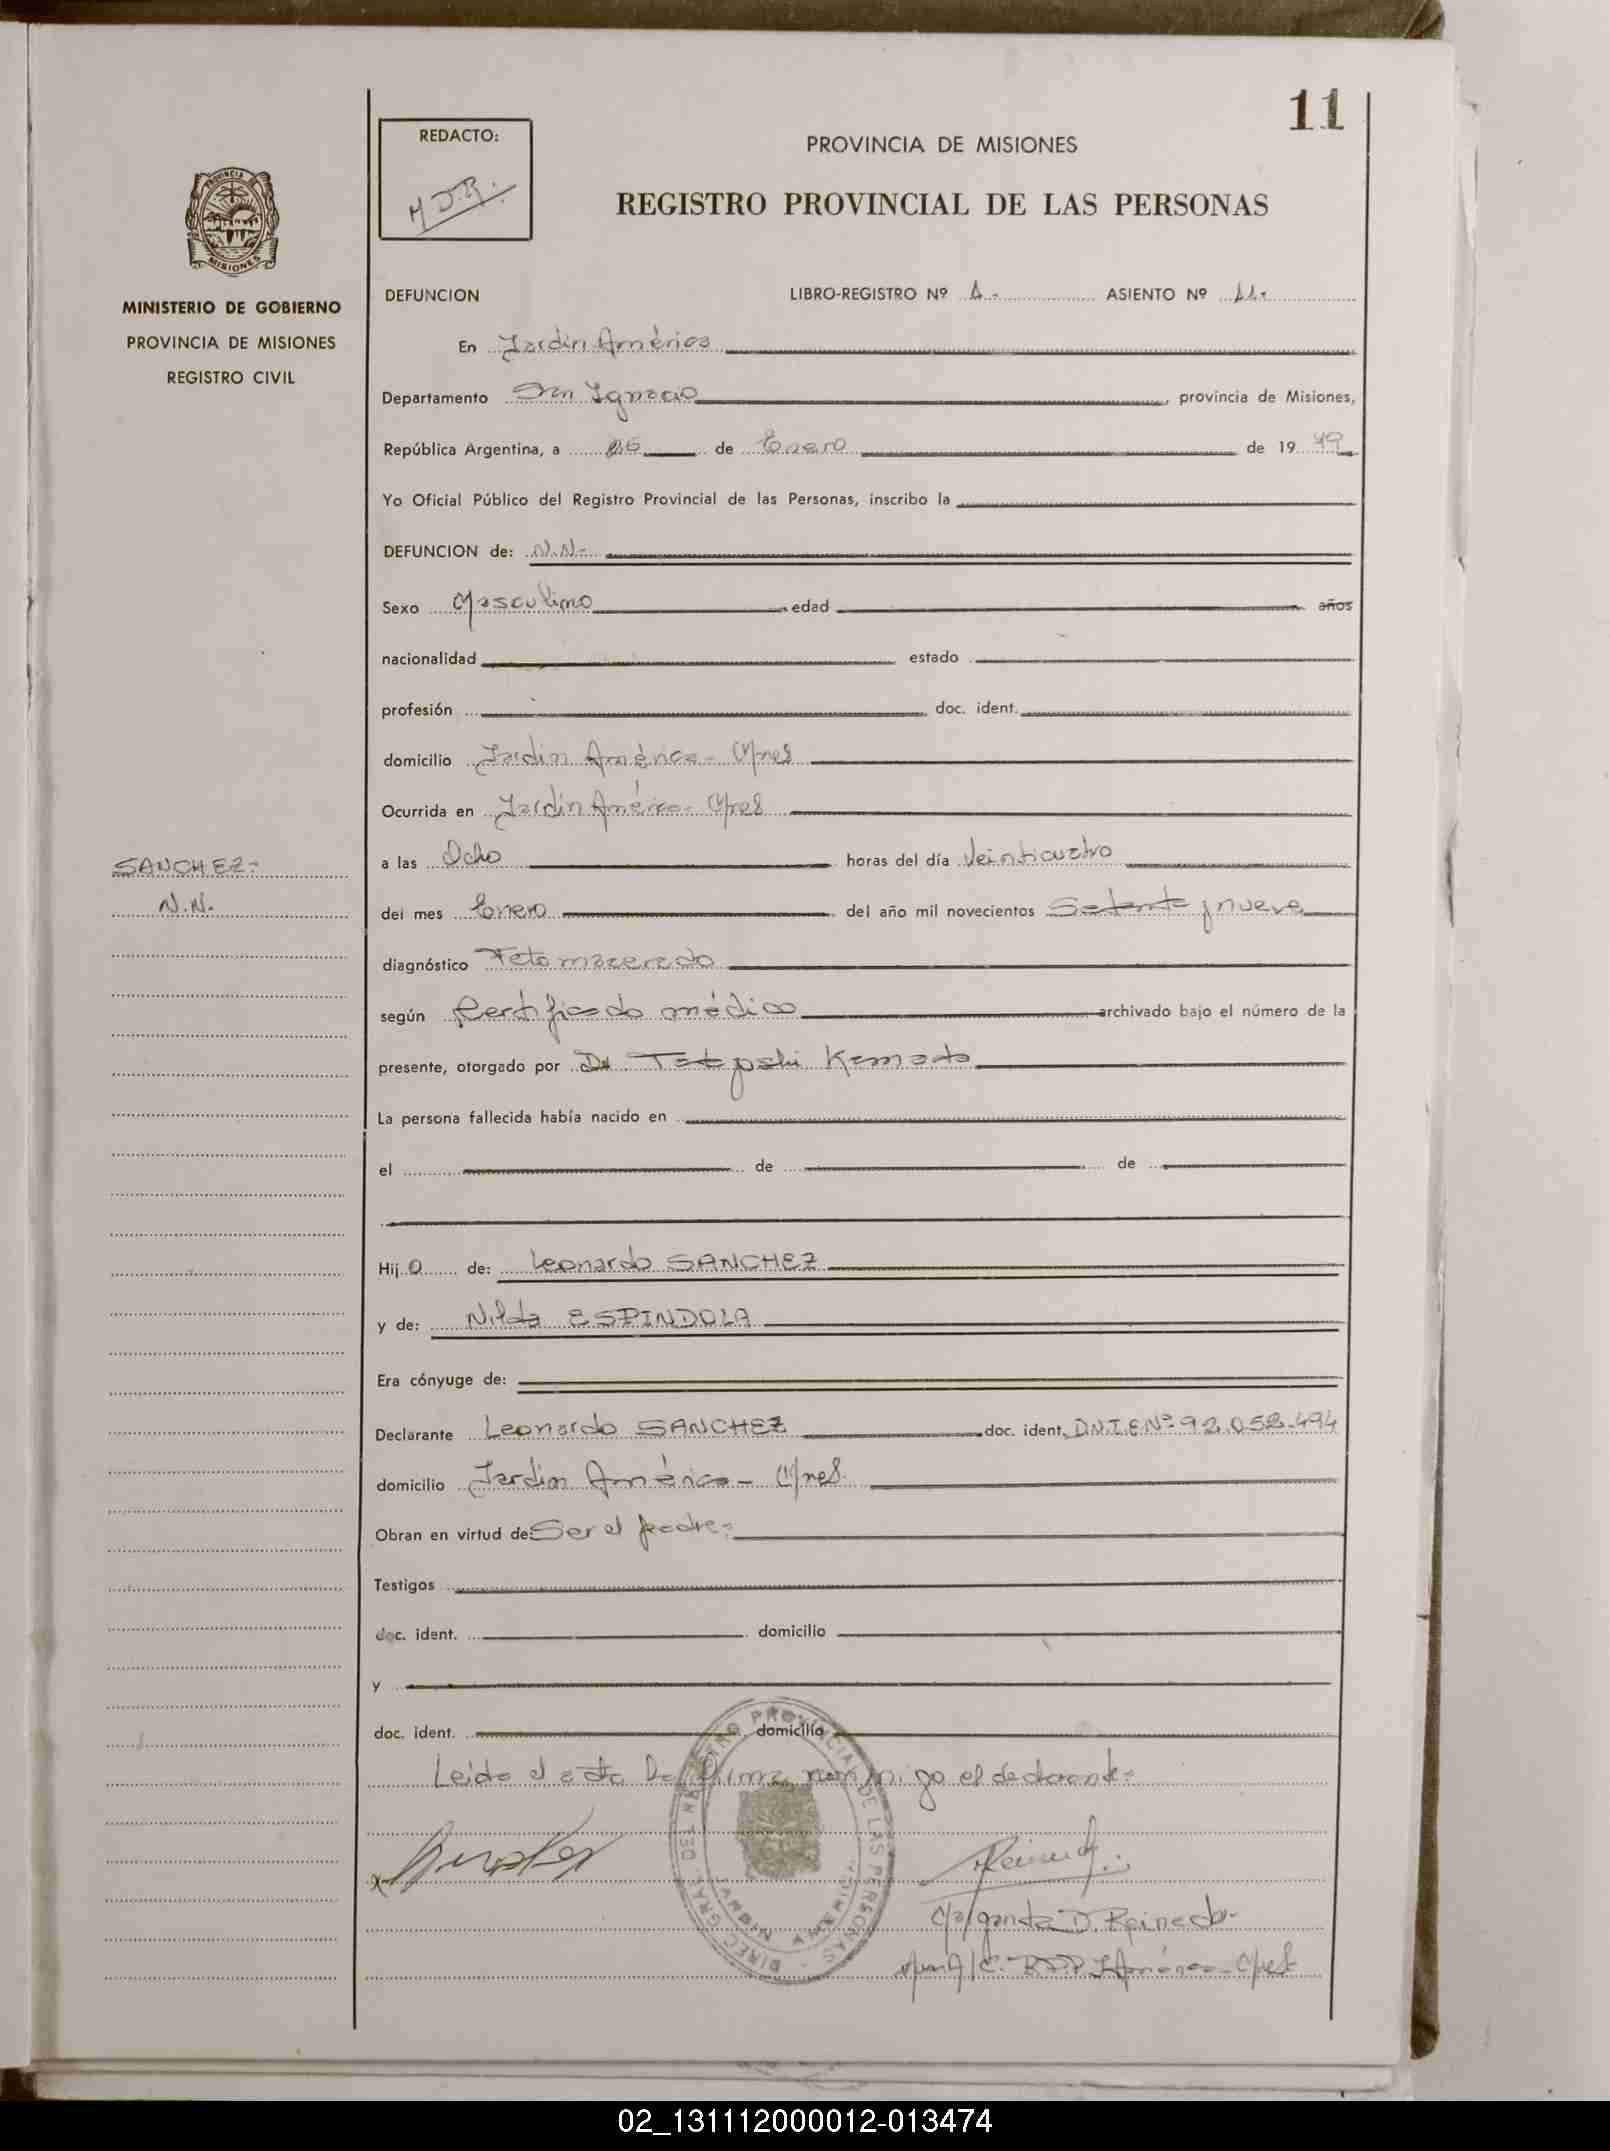 11
REDACTO:
M.D.R.
PROVINCIA DE MISIONES
REGISTRO PROVINCIAL DE LAS PERSONAS
PROVINCIA
MISIONES
MINISTERIO DE GOBIERNO
PROVINCIA DE MISIONES
REGISTRO CIVIL
DEFUNCION LIBRO-REGISTRO Nº 1.- ASIENTO Nº 11.-
En Jardín América
Departamento San Ignacio, provincia de Misiones,
República Argentina, a de Enero de 19 79
Yo Oficial Público del Registro Provincial de las Personas, inscribo la
DEFUNCION de: N.N.-
Sexo Masculino edad años
nacionalidad estado
profesión doc. ident.
domicilio Jardín América - Mnes
Ocurrida en Jardín América - Mnes
SANCHEZ-
N.N.
a las Ocho horas del día Veinticuatro
del mes Enero del año mil novecientos Setenta y nueve
diagnóstico Feto macerado
según Certificado médico archivado bajo el número de la
presente, otorgado por Dr. Kamada
La persona fallecida había nacido en
el de de
Hij o de: Leonardo SANCHEZ
y de: Nilda ESPINDOLA
Era cónyuge de:
Declarante Leonardo SANCHEZ doc. ident. D.N.I.E.Nº 92.058.494
domicilio Jardín América - Mnes.
Obran en virtud de: Ser el padre-
Testigos
doc. ident. domicilio
y
doc. ident. domicilio
Leida el acta la firma conmigo el declarante-
DIREC. GRAL. DEL REGISTRO PROVINCIAL DE LAS PERSONAS
JARDIN AMERICA
Margarita D. Reineck-
A/C. R.P.P. J. América - Mnes
02_131112000012-013474